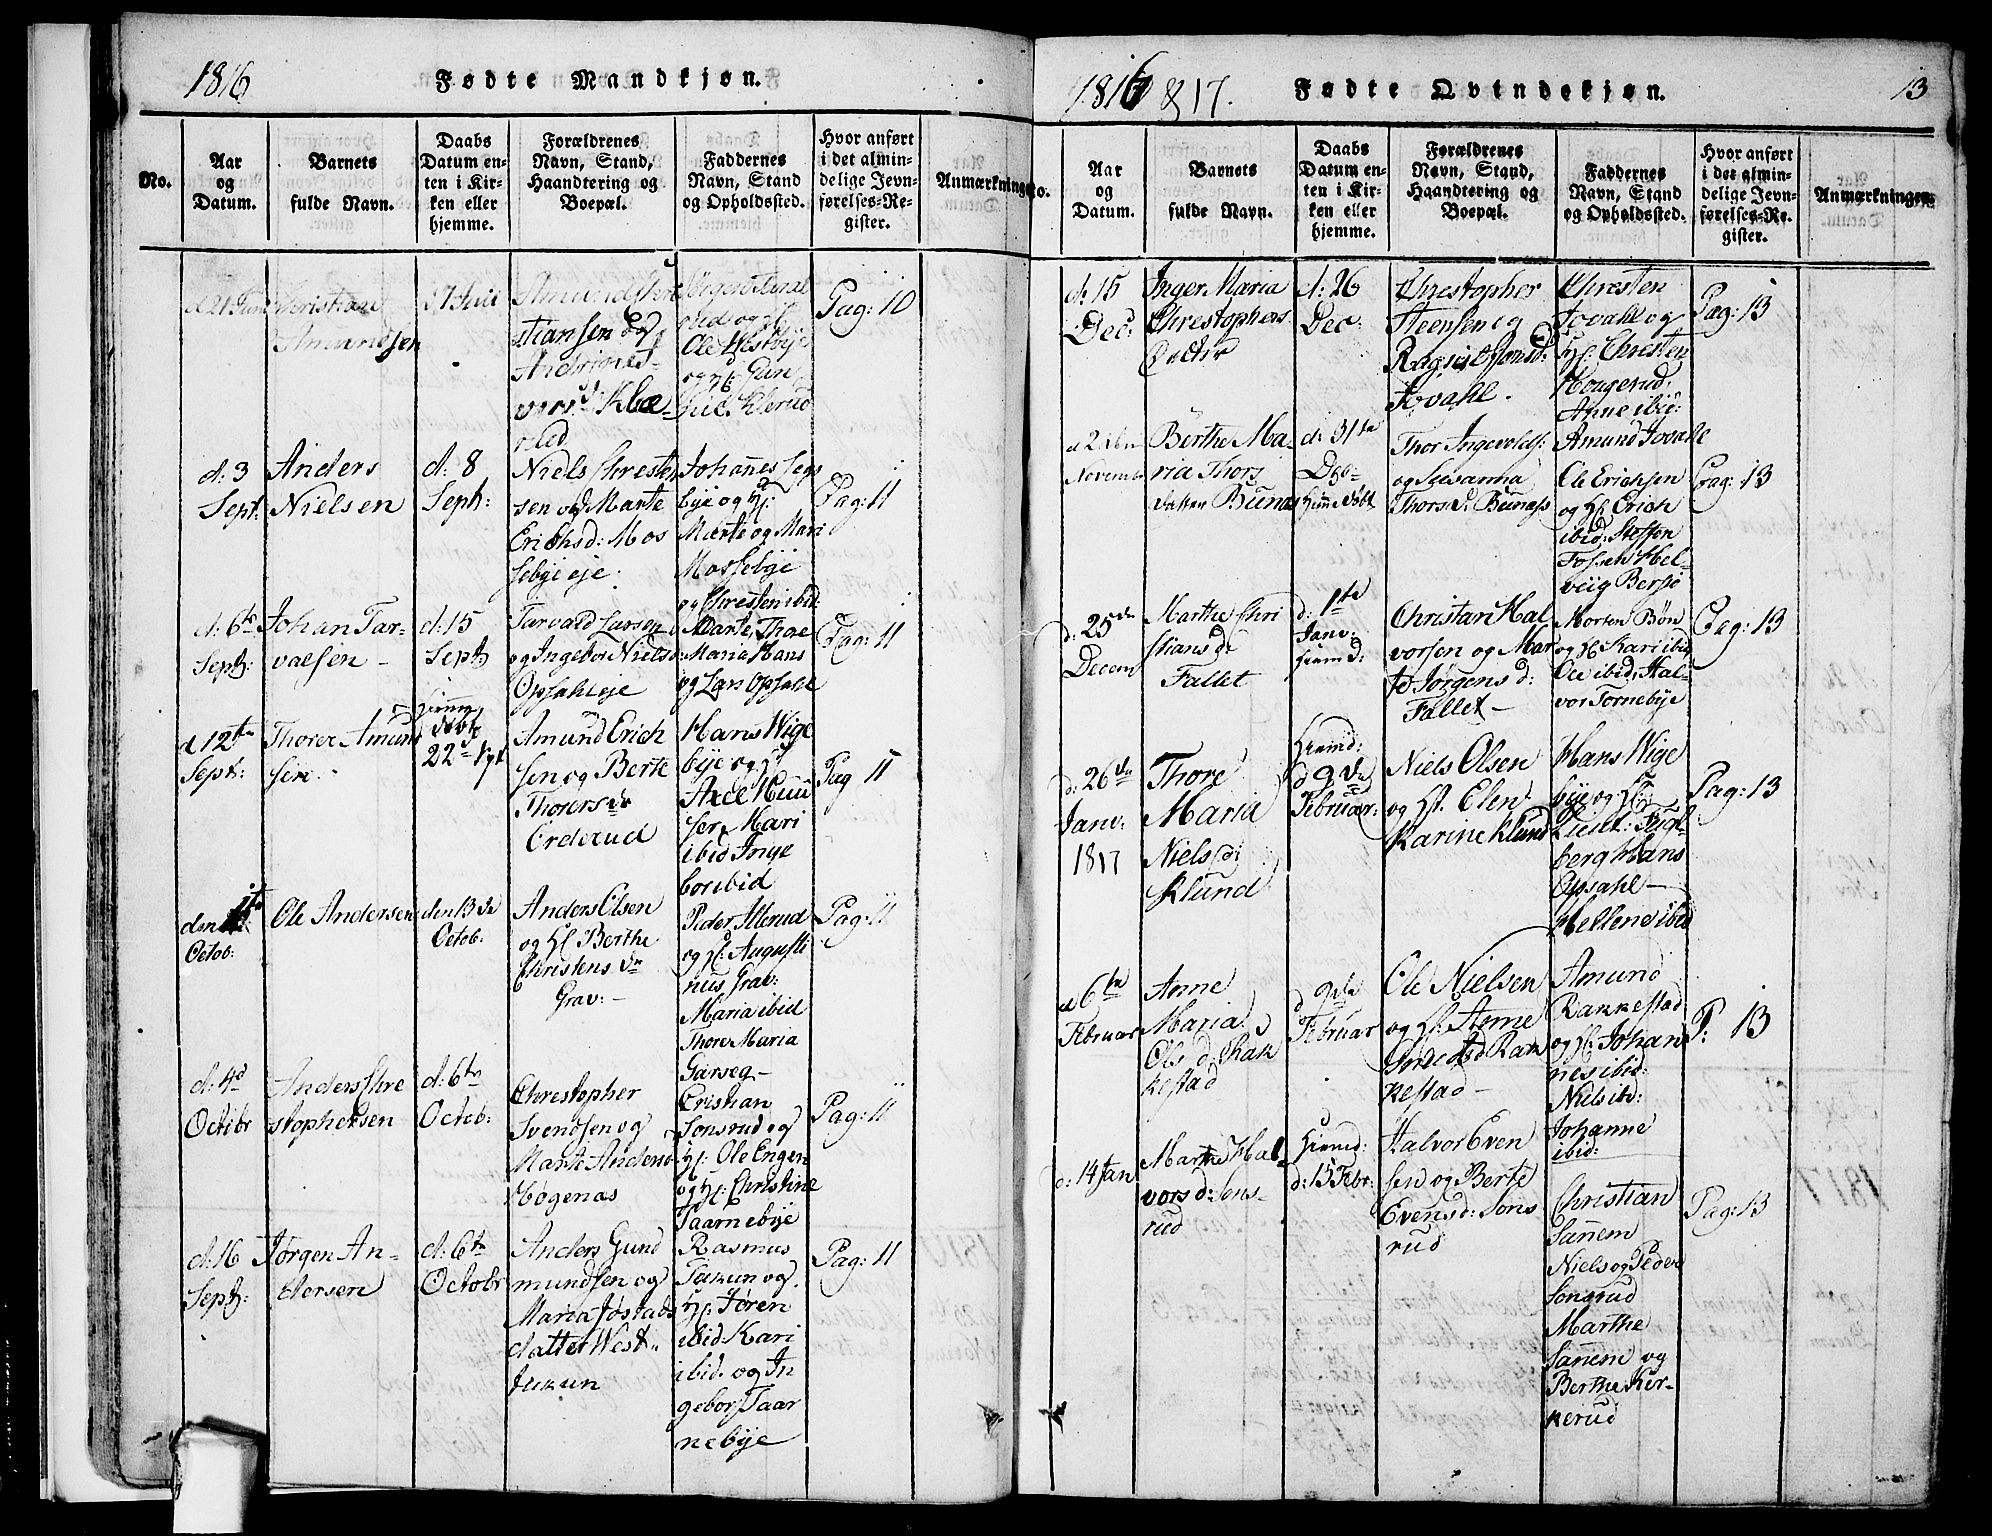 1816
Fødte Mandkjøn.
No.
Aar
og
Datum.
Barnets
fulde Navn.
Daabs
Datum en-
ten i Kir-
ken eller
hjemme.
Forældrenes
Navn, Stand,
Haandtering og
Boepæl.
Faddernes
Navn, Stand
og Opholdssted.
Hvor anført
i det almin-
delige Jevn-
førelses-Re-
gister.
Anmærkninger
Christian
Amundsen
Pag: 10
d: 3
Sept:
Anders
Nielsen
d: 8
Sept:
Niels Chresten
sen og Marte
Erichsd: Mos
sebye eje:
Johannes
bye og H:
Marte og Mari
Mossebye
og Chresten ibid
Pag: 11
d: 6te
Sept:
Johan Tar-
valsen
d: 15
Sept
Tarvald Larsen
og Ingebor Niels
Opsahl eje
Marte, Thore
Maria Hans
og Lars Opsahl
Pag: 11
d 12te
Sept:
Thorer Amund
sen
22de
Amund Erich
sen og Berte
Thorers dr
Orderud
Hans Wige
bye og H:
ibid Inge
bor ibid
Pag 11
den 11te
Octob:
Ole Andersen
den 13de
Octob:
Anders Olsen
og H Berthe
Christens dr
Grav:
Peder Allerud
og H: Augusti
nus Grav:
Maria ibid
Thore Maria
Garseg
Pag: 11
d: 4d
Octobr
Anders Chre
stophersen
d: 6te
Octob:
Chrestopher
Svendsen og
Marte Anders
Høgenas
Cristian
Sonsrud og
H: Ole Engen
og H: Christine
Taarnebye
Pag: 11
d: 16
Sept:
Jørgen An-
dersen
d: 6te
Octobr
Anders Gund
mundsen og
Maria Jostads
datter West
Jukun
Rasmus
Jukun og
H: Jøren
ibid Kari
ibid. og In
gebor Taar
nebye
Pag: 11
1816 & 17.
Fødte Qvindekjøn.
13
No.
Aar
og
Datum.
Barnets
fulde Navn.
Daabs
Datum en-
ten i Kir-
ken eller
hjemme.
Forældrenes
Navn, Stand,
Haandtering og
Boepæl.
Faddernes
Navn, Stand
og Opholdssted.
Hvor anført
i det almin-
delige Jevn-
førelses-Re-
gister.
Anmærkninger.
d: 15
Dec:
Inger Maria
Chrestophers
Datter
d: 26
Dec:
Chrestopher
Steensen og
Jovahl.
Chresten
Jovahl og
H: Chresten
Haagerud,
Anne ibid:
Pag: 13
Novemb
Berthe Ma-
ria Thors
datter Bunas
d: 31te
Dec-
hjemme døbt
Thor Ingevolds:
og Susanna
Thors d: Bunass
Amund Jovahl
Ole Erichsen
og H: Erich
ibid: Steffen
Fossen Hel-
veig Bersø
Pag: 13
d: 25de
Decem
Marthe Chri
stians dr
Fallet
d: 1te
Janv:
Christian Hal
vorsen og Mar
te Jørgens d:
Fallet
Morten Bøn
og H Kari ibid
Ole ibid, Hal-
vor Tornebye
Pag: 13
d: 26de
Janv:
1817
Thore
Maria
Niels d:
Klund
d 9de
Februar:
Niels Olsen
og H: Elen
Karine Klund
Hans Wige
bye og H:
Lieut: Fugl-
berg Hans
Opsahl
Hellene ibid
Pag: 13
d 6te
Februar
Anne
Maria
Ols d: Rak
kestad
d 9de
Februar
Ole Nielsen
og H: Anne
kestad
Amund
Rakkestad
og H: Johan
nes ibid:
Niels ibd:
Johanne
ibid:
P: 13
d: 14 Jan
Marthe Hal-
vors d: Sons-
rud
d: 15 Febr:
Halvor Even
sen og Berte
Evensd: Sons
rud
Christian
Sanem
Niels og Peder
Sonsrud
Marthe
Sanem og
Berthe Kir-
kerud
Pag: 13